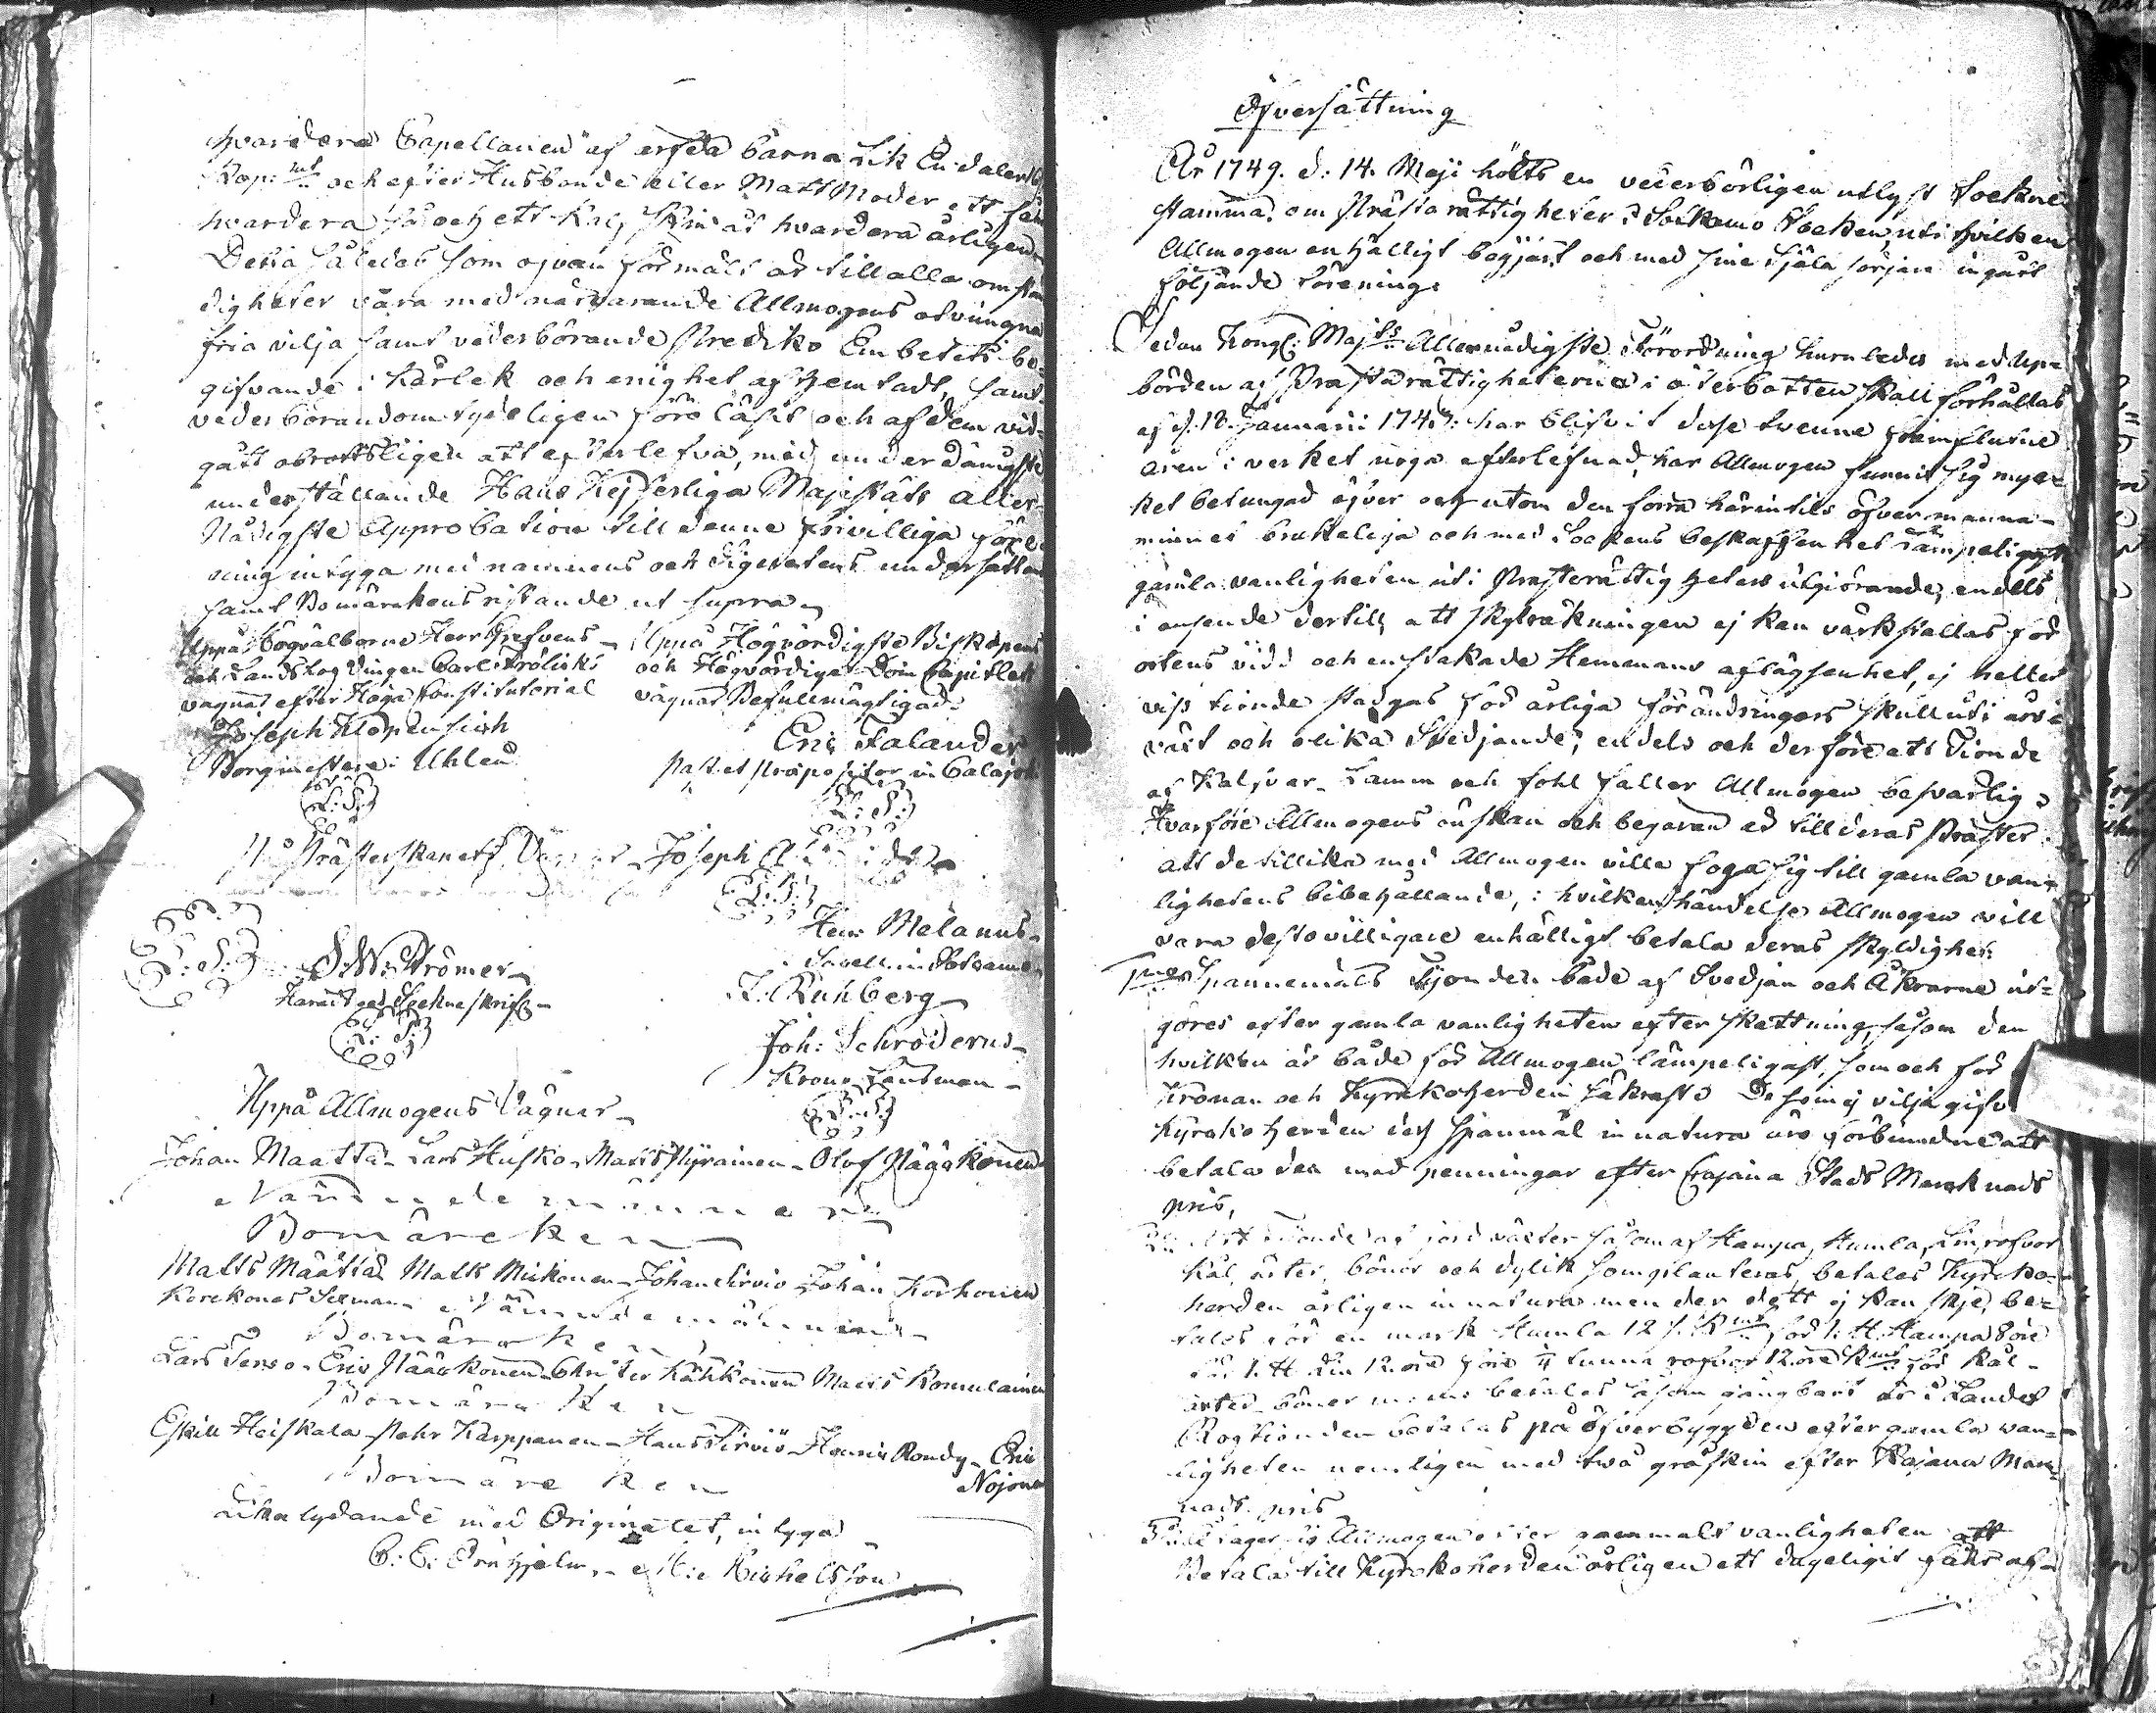 hvardera Capellanen af ersta barna Lik En daler
Kop: mt och efter Husbonde eller Matt Moder ett får
hvardera få och ett Kalf skin af hvardera årligen
Detta således som ofvan förmält är till alla omstän
digheter vara med närvarande Allmogens otvungna
fria vilja samt vederbörande Prediko Embetets be-
gifvande i Kärlek och enighet afhemtadt, samt
vederbörandom tydeligen före läsit och af dem vid-
gått obrottsligen att efterlefva, med underdånigste
understållande Hans Kejserliga Majestäts aller-
Nådigste Approbation till denne frivilliga före-
ning intyga med namnens och Signetens undersättan
samt Bomärckens ristande ut supra
Uppå Högvälborne Herr Grefvens
och Landshöfdingen Carl Frölichs
vägnar efter Höga Constitutorial
Joseph Klopensich
Borgmästare i Uhleå
L: S:
Uppå Högvördigste Biskopens
och Högvördige Dom Capitlets
vägnar Befullmägtigad
Eric Falander
Past: et Præpositor in Calajoki
L: S:
Prästerskapets Vägnar Joseph
L: S:
Henr: Melanus
Sacell: in
L: S: S: W: Strömer
Härads och Sockneskrif:
L: S:
Z: Ruhberg
Joh: Schroderus
Krono Länsman
L: S:
Uppå Allmogens Vägnar
Johan Maatta Lars Husko Matts Hyvainen Olof Pääkönen
Nämndemännen
Bomärcken
Matts Määttä Matts Mickonen Johan Sirviö Johan Korhonen
Kyrckones Sexman Nämndemännen
Bomärcken
Lars Servo Eric Pääkkonen Christer Kähkönen Matts Komulainen
Bomärcken
Eskill Heiskala Pehr Karppanen Hans Sirviö Henric Rondy Eric
Nojonen
Bomärcken
Lika lydande med Originalet, intyga
C: C: Örnhjelm M: Michelsson
Öfversättning
År 1749. d: 14. Maji hölts en vederbörligen utlyst Sockne
stämma, om Prästa rättigheter i Sotkamo Socken, uti hvilken
Allmogen enhälligt begjärt och med sine Själa sörjare ingått
följande förening:
Sedan Kongl: Majts Allernådigste Förordning huruledes med Upp-
börden af Prästarättigheterne i österbotten skall förhållas
af d. 18. Januarii 174 har blifvit dese tvenne framflutne
åren i verket noga efterlefvad, har Allmogen funnit sig myc-
ket betungad öfver och utom den förra härintils öfver manna-
minnes brukeliga och med Sockens beskaffenhet lämpeligaste
gamla vanligheten uti Prästerättigheters utgiörande, en dels
i anseende dertill att skylräkningen ej kan värkställas för
ortens vidd och enstakade Hemmans aflägsenhet, ej heller
viss tionde stadgas för årliga förändringars skull uti års-
växt och olika Svedjande; en dels och derföre att Tionde
af Kalfvar, Lamm och fohl faller Allmogen besvärlig
Hvarföre Allmogens önskan och begäran är till deras Präster
att de tillika med Allmogen ville foga sig till gamla van-
lighetens bibehållande, i hvilken händelse Allmogen vill
vara desto villigare enhälligt betala deras skyldighet.
1mo Spannemåls Tjonden både af Svedjan och Åkrarne ut-
göres efter gamla vanligheten efter skattning, såsom den
hvilken är både för Allmogen lämpeligast, som och för
Kronan och Kyrckoherden säkrast De som ej vilja gifva
Kyrckoherden des Spanmål in natura äro förbundne att
betala den med penningar efter Cajana Stads Marcknads
pris,
Tionde af jord växter såsom af Hampa, Humla, Lin, rofvor
kål, ärter, bönor och dylik som planteras, betales Kyrcko-
herden årligen in natura men der dett ej kan skje, be-
tales för en mark Humla 12 för 1. ℔ Hampa 8 öre
för 1. ℔ Lin 12. öre före ¼ tunna rofvor 12. öre Kmt för kål
ärter bönor m: m: betales såsom gångbart är i Landet
Rogtionden betalas på öfverbygden efter gamla van-
ligheten nemligen med två gråskin efter Kajana Mark-
nads pris
3 åtager sig Allmogen efter gammalt vanligheten att
Betala till Kyrckoherden årligen ett dageligit fåhr af